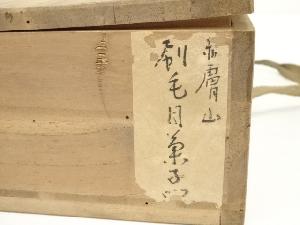 赤膚山
刷毛目菓子皿